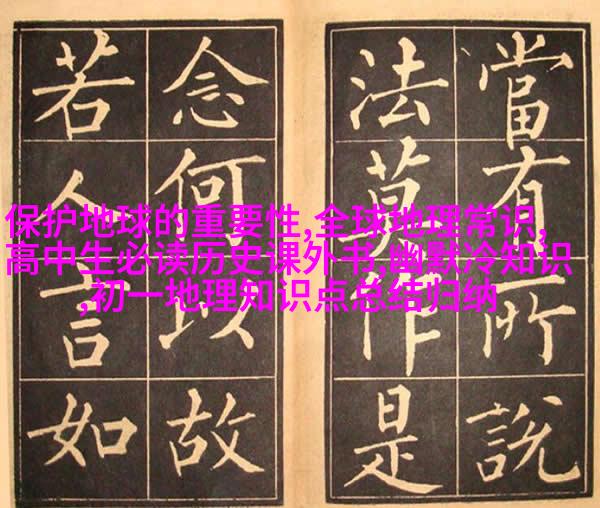 當有所說
法莫作是
念何以故
若人言如
保护地球的重要性,全球地理常识,
高中生必读历史课外书,幽默冷知识
,初一地理知识点总结归纳